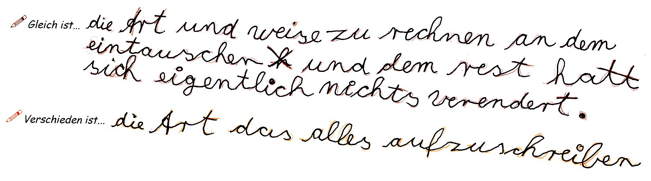 Gleich ist... die Art und weise zu rechnen an dem
eintauschen und dem rest hatt
sich eigentlich nichts verendert.
Verschieden ist... die Art das alles aufzuschreiben